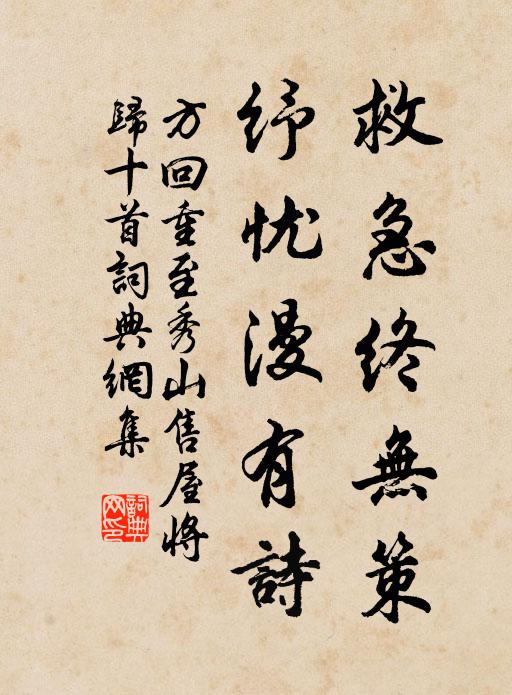 救急終無策
纾忧漫有詩
方回重至秀山售屋將
歸十首詞典網集
詞典
网印